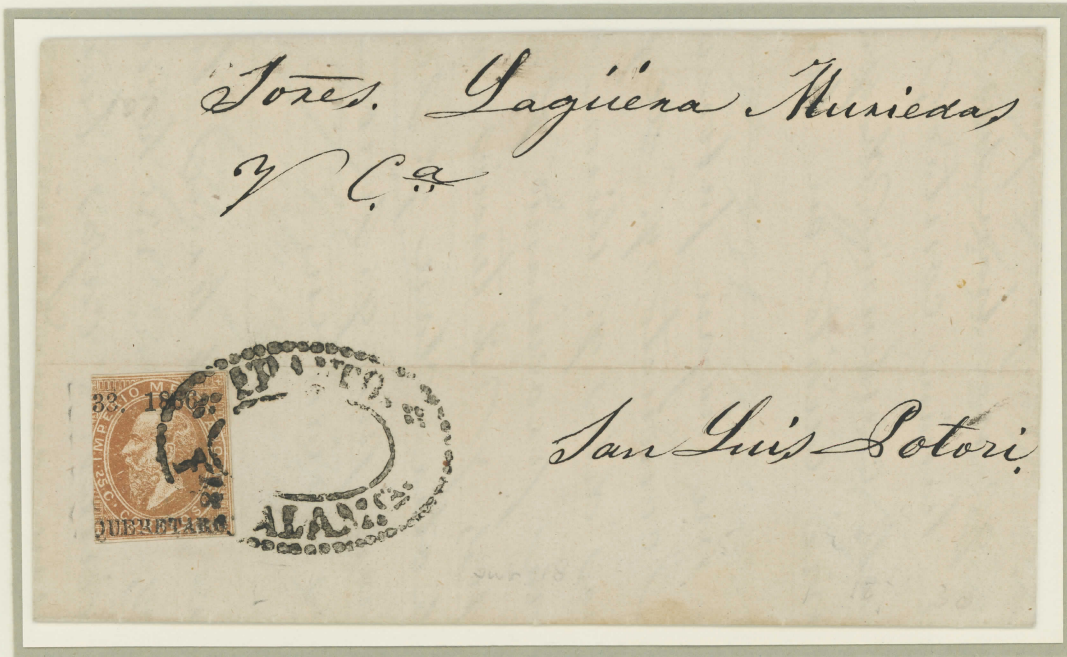 Sores. Lagüera Muriedas
y Cª
33. 1866
IMPERIO ME
25 C.
QUERETARO
San Luis Potosi.